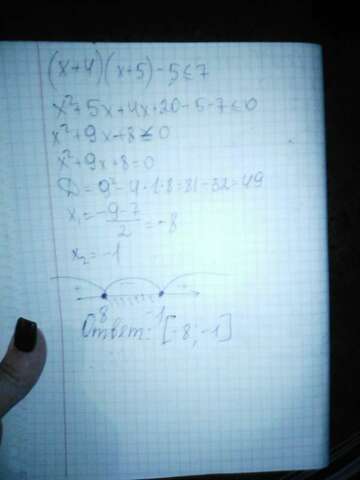 (x+4)(x+5)-5≤7
x²+5x+4x+20-5-7≤0
x²+9x+8≤0
x²+9x+8=0
D=9²-4·1·8=81-32=49
x₁=\frac{-9-7}{2}=-8
x₂=-1
+ - +
-8 -1
Ответ: [-8; -1]